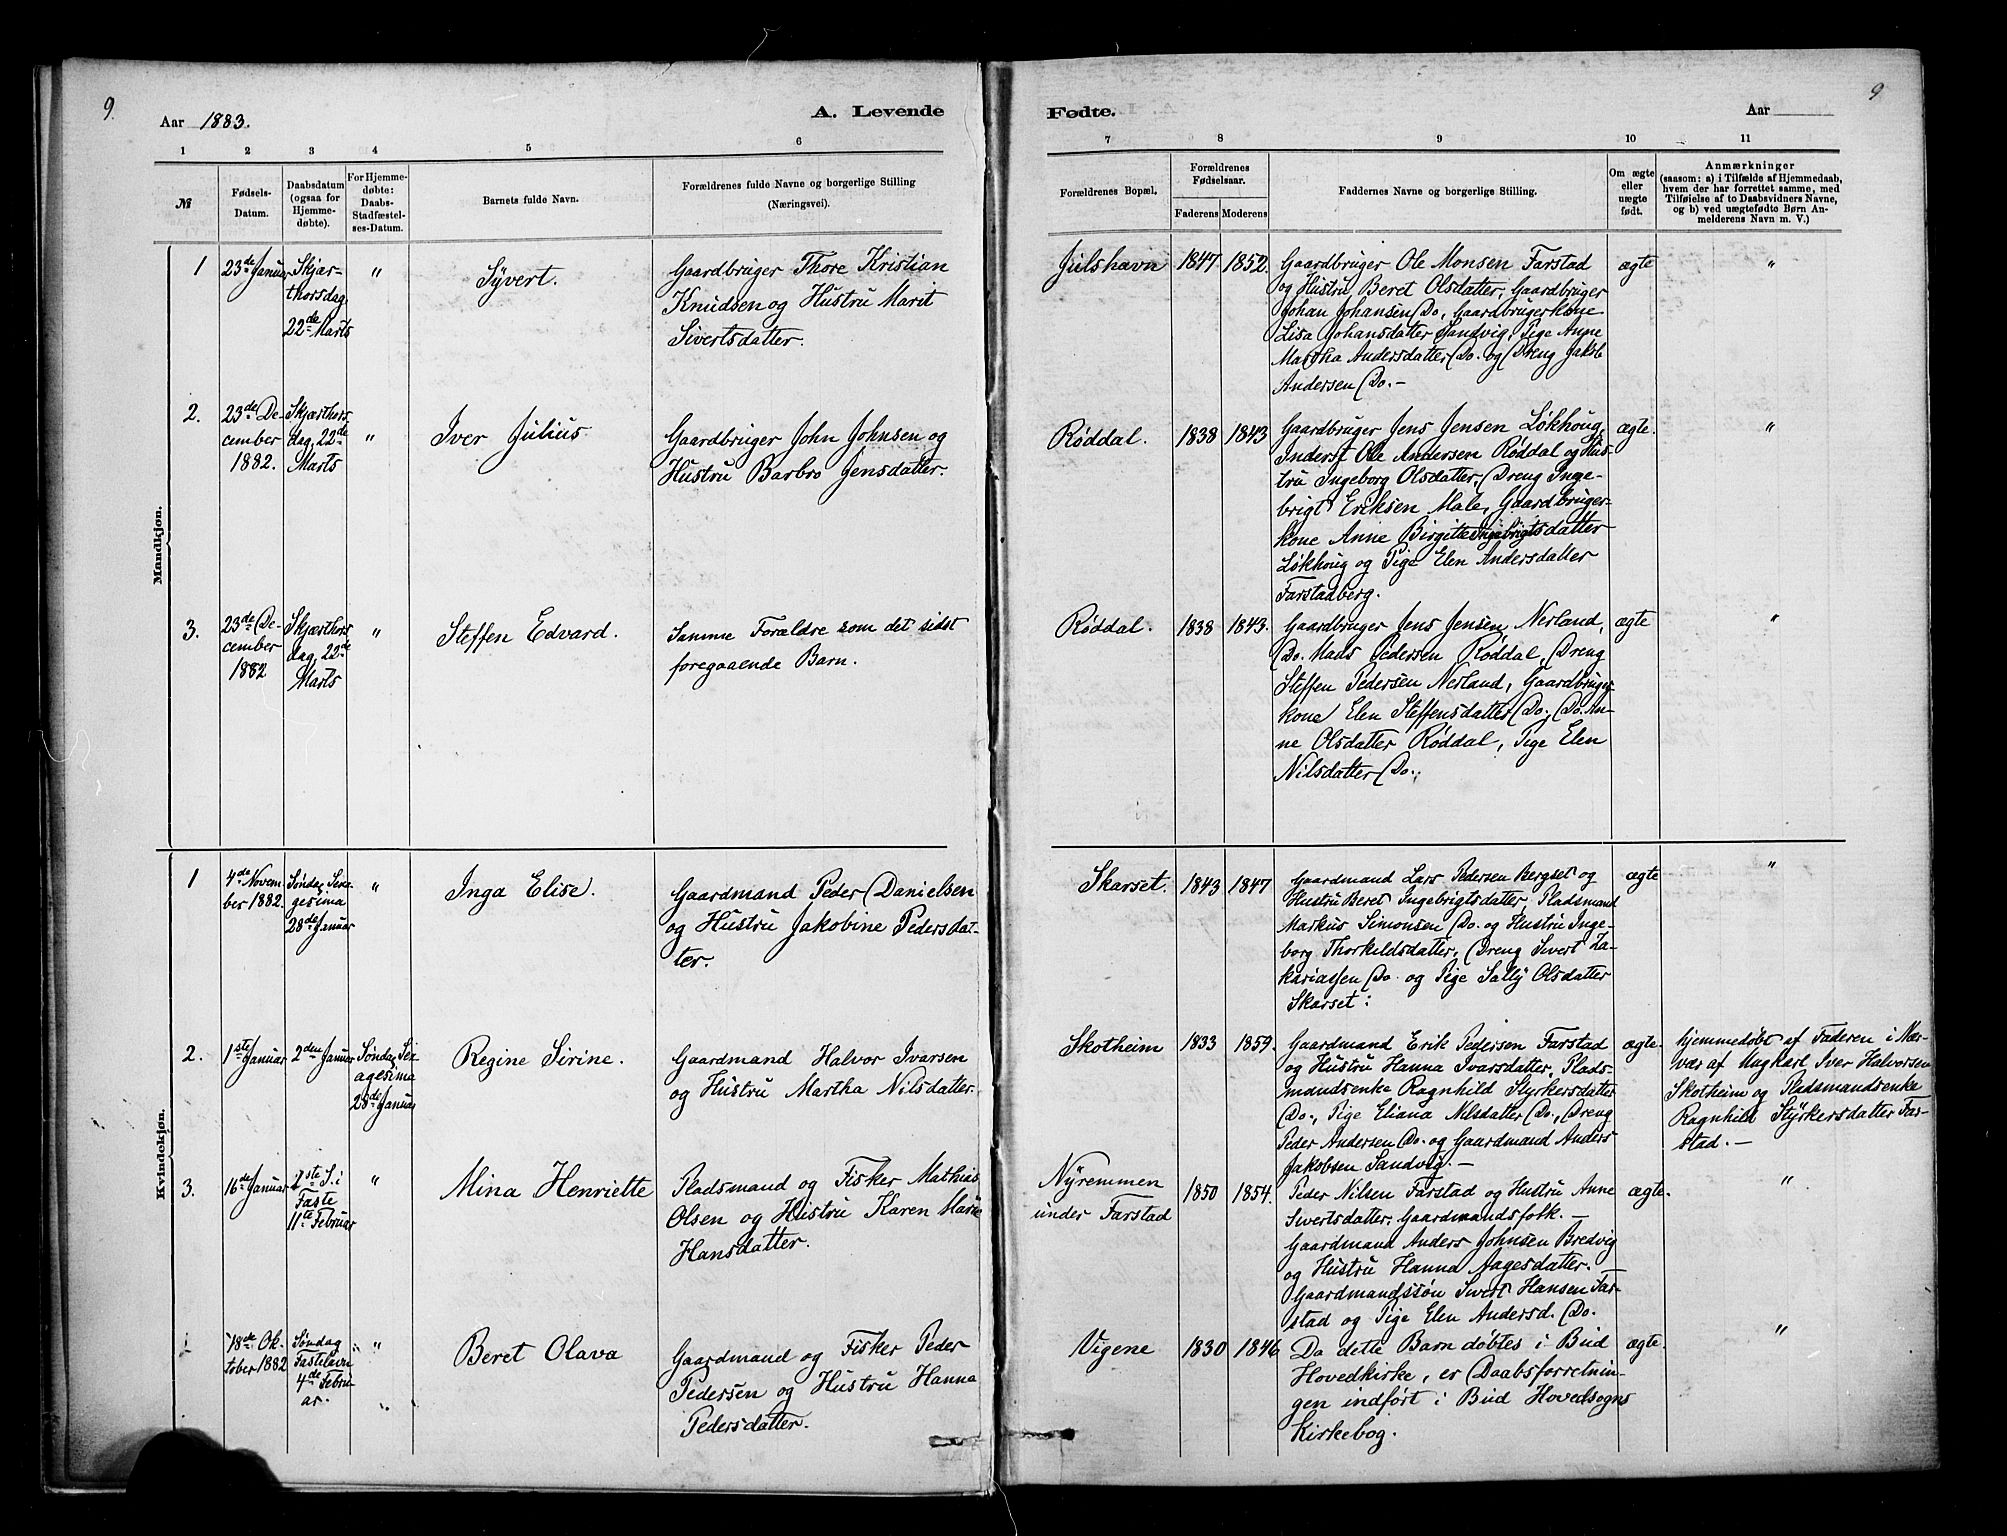 9.
Aar 1883.
A. Levende
1 2 3 4 5 6
№
Fødsels-
Datum.
Daabsdatum
(ogsaa for
Hjemme-
døbte).
For Hjemme-
døbte:
Daabs-
Stadfæstel-
ses-Datum.
Barnets fulde Navn.
Forældrenes fulde Navne og borgerlige Stilling
(Næringsvei).
Mandkjøn.
1
23de Januar
Skjær-
thorsdag
22de Marts
"
Syvert.
Gaardbruger Thore Kristian
Knudsen og Hustru Marit
Sivertsdatter.
2.
23de De-
cember
1882.
Skjærthors
dag, 22de
Marts
"
Iver Julius.
Gaardbruger John Johnsen og
Hustru Barbro Jensdatter.
3.
23de De-
cember
1882
Skjærthors
dag, 22de
Marts
"
Steffen Edvard.
Samme Forældre som det sidst
foregaaende Barn.
Kvindekjøn.
1
4de Novem-
ber 1882.
Søndag Sexa-
gesima
28de Januar
"
Inga Elise.
Gaardmand Peder Danielsen
og Hustru Jakobine Pedersdat-
ter.
2.
1ste Januar
2den Januar
Søndag Sex-
agesima
28de Januar
Regine Sirine.
Gaardmand Halvor Ivarsen
og Hustru Martha Nilsdatter.
3.
16de Januar
1ste S. i
Faste
11te Februar
"
Mina Henriette
Pladsmand og Fisker Mathias
Olsen og Hustru Karen Marie
Hansdatter.
18de Ok-
tober 1882
Søndag
Fastelavn
4de Febru-
ar.
"
Beret Olava
Gaardmand og Fisker Peder
Pedersen og Hustru Hanna
Pedersdatter.
9
Fødte.
Aar
7 8 9 10 11
Forældrenes Bopæl.
Forældrenes
Fødselsaar.
Faderens Moderens
Faddernes Navne og borgerlige Stilling.
Om ægte
eller
uægte
født.
Anmærkninger
(saasom: a) i Tilfælde af Hjemmedaab,
hvem der har forrettet samme, med
Tilføielse af to Daabsvidners Navne,
og b) ved uægtefødte Børn An-
melderens Navn m. V.)
Julshavn
1847 1852.
Gaardbruger Ole Monsen Farstad
og Hustru Beret Olsdatter, Gaardbruger
Johan Johansen Do, Gaardbrugerkone
Lisa Johansdatter Sandvig, Pige Anne
Martha Andersdatter Do. og Dreng Jakob
Andersen Do. -
ægte
"
Røddal.
1838 1843
Gaardbruger Jens Jensen Løkhoug,
Inderst Ole Andersen Røddal og Hus-
tru Ingeborg Olsdatter, Dreng Inge-
brigt Eriksen Male, Gaardbruger-
kone Anne Birgitte Ingebrigtsdatter
Løkhoug og Pige Elen Andersdatter
Farstadberg.
ægte.
"
Røddal.
1838 1843.
Gaardbruger Jens Jensen Nerland,
Do. Mads Pedersen Røddal, Dreng
Steffen Pedersen Nerland, Gaardbruger-
kone Elen Steffensdatter Do., Do. An-
ne Olsdatter Røddal, Pige Elen
Nilsdatter Do.
ægte
"
Skarset.
1843 1847
Gaardmand Lars Pedersen Bergset og
Hustru Beret Ingebrigtsdatter, Pladsmand
Markus Simonsen Do. og Hustru Inge-
borg Thorkildsdatter, Dreng Sivert Za-
kariassen Do. og Pige Sally Olsdatter
Skarset.
ægte
"
Skotheim
1833 1859.
Gaardmand Erik Pedersen Farstad
og Hustru Hanna Ivarsdatter, Plads-
mandsenke Ragnhild Styrkersdatter
Do., Pige Eliana Nilsdatter Do., Dreng
Peder Andersen Do. og Gaardmand Anders
Jakobsen Sandvig. -
ægte.
hjemmedøbt af Faderen i Nær-
vær af Ungkarl Iver Halvorsen
Skotheim og Pladsmandsenke
Ragnhild Styrkersdatter Far-
stad. -
Nyremmen
under Farstad
1850 1854.
Peder Nilsen Farstad og Hustru Anne
Sivertsdatter, Gaardmandsfolk. -
Gaardmand Anders Johnsen Bredvig
og Hustru Hanna Aagesdatter.
Gaardmandssøn Sivert Hansen Far-
stad og Pige Elen Andersd. Do.
ægte.
"
Vigene
1830 1846
Da dette Barn døbtes i Bud
Hovedkirke, er Daabsforretnin-
gen indført i Bud Hovedsogns
Kirkebog.
ægte.
"